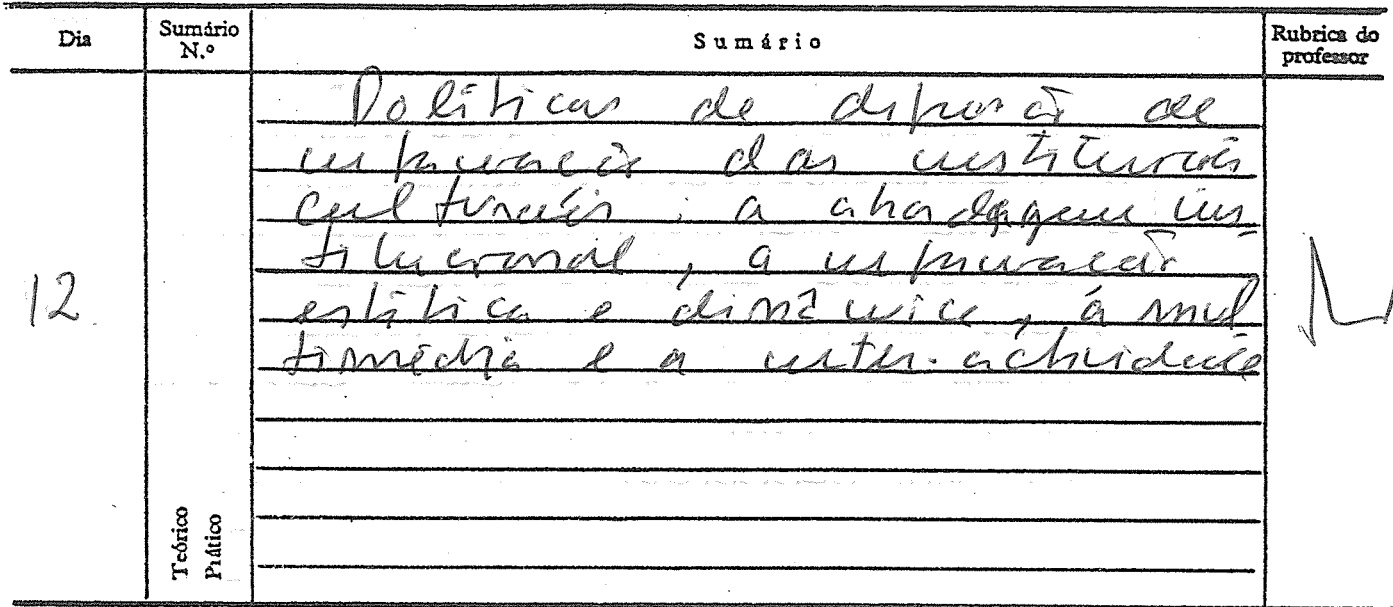 Dia
Sumário N.º
Sumário
Rubrica do professor
12
Políticas de difusão de
informação das instituições
culturais: a abordagem ins-
titucional, a informação
estática e dinâmica, a mul
timédia e a inter-actividade
Teórico
Prático